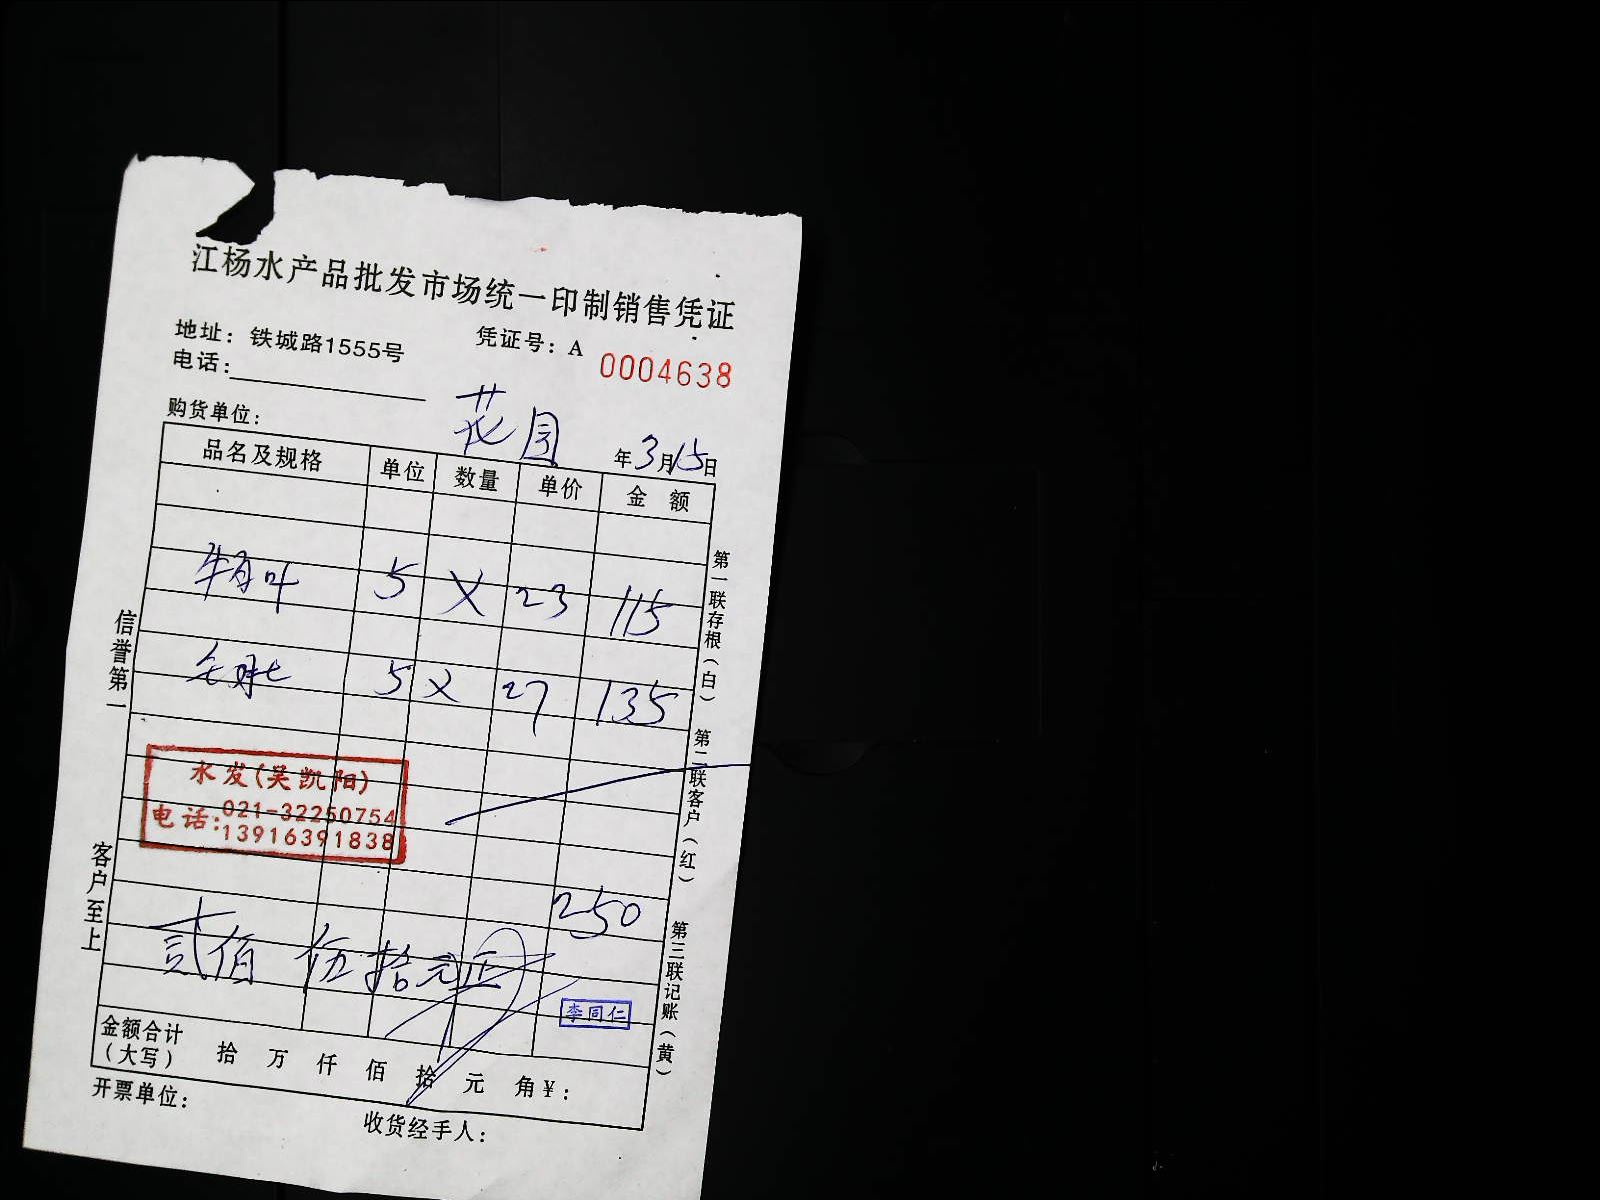 江杨水产品批发市场统一印制销售凭证
地址：铁城路1555号
凭证号：A 0004638
电话：
购货单位：
花园
年3月15日
品名及规格 单位 数量 单价 金额
牛百叶 5 X 23 115
5 X 27 135
水发(吴凯阳)
电话：021-32250754
13916391838
250
贰佰伍拾元正
李同仁
金额合计
（大写） 拾 万 仟 佰 拾 元 角 ¥：
开票单位：
收货经手人：
信誉第一
客户至上
第一联存根（白）
第二联客户（红）
第三联记账（黄）